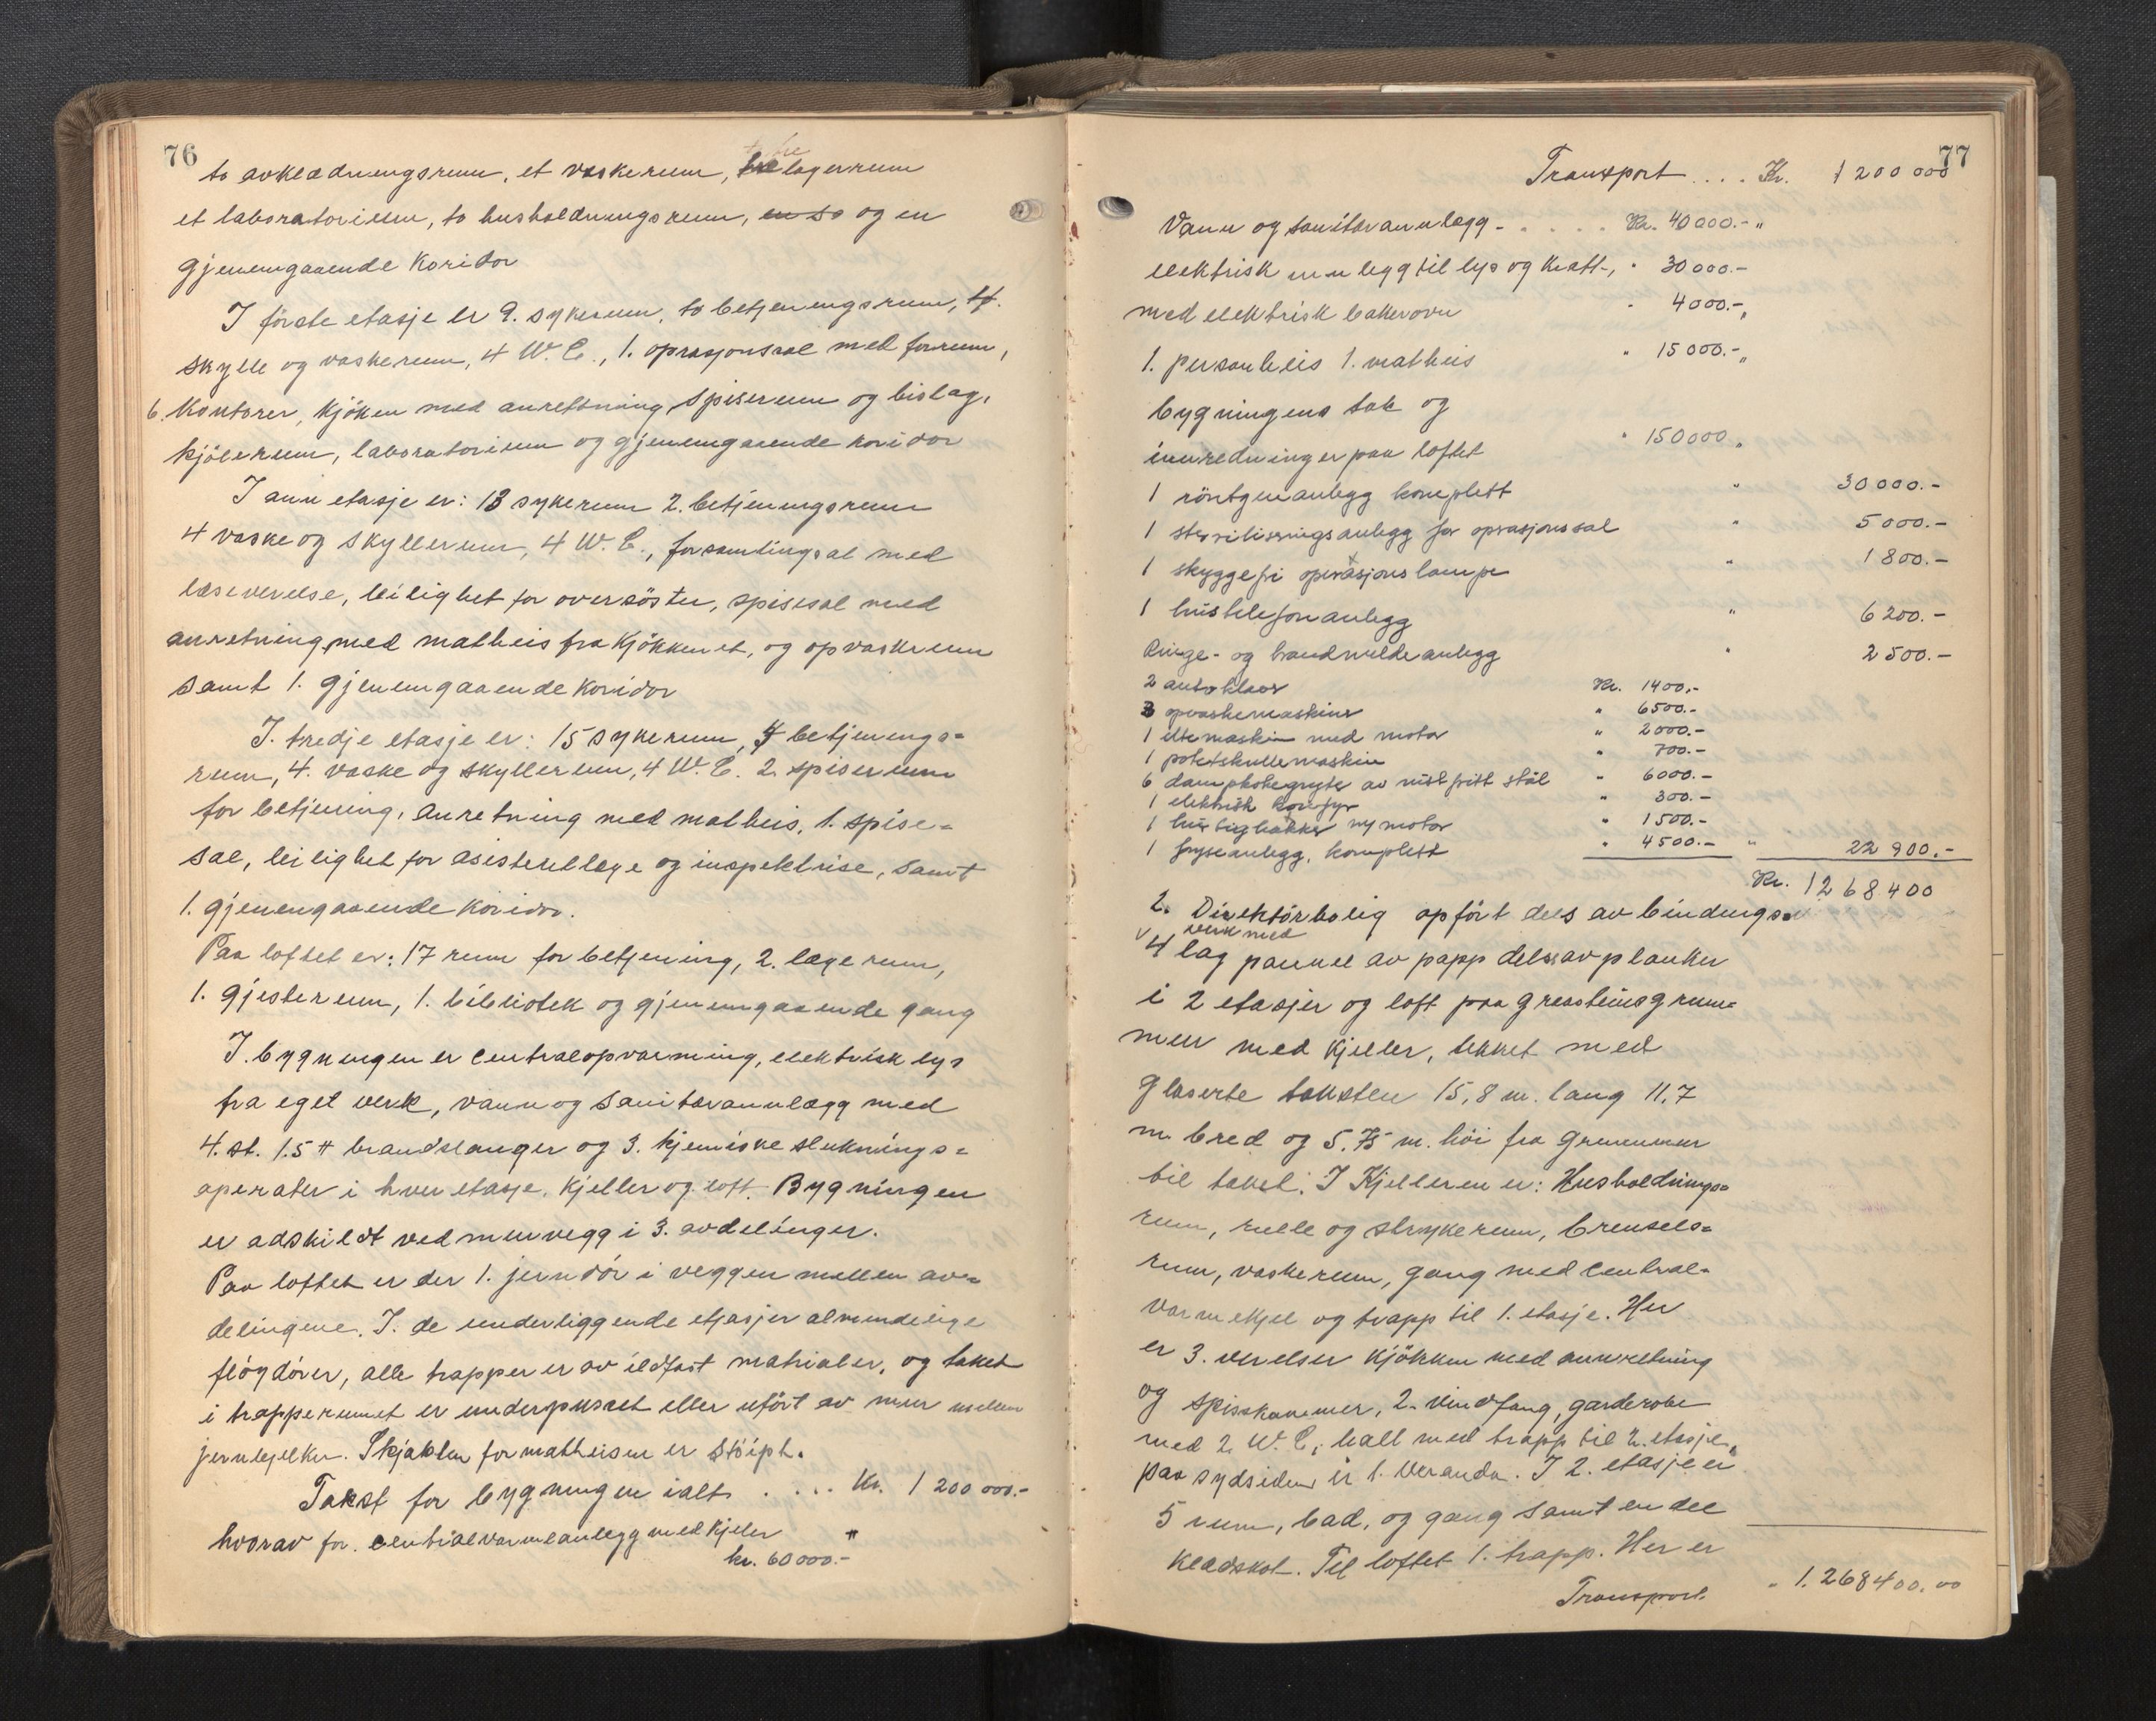 76
to avklædnungsrum, et vaskerum, tre lagerrum
et laboratorium, to husholdnungsrum, en so og en
gjenemgaaende Koridor
I förste etasje er 9. sykerum, to betjenungsrum, 4.
skylle og vaskerum, 4 W.C., 1. oprasjonsal med forrum,
6. Kontorer, Kjöken med anrettning spiserum og bislag,
kjölerum, laboratorium og gjenemgaaende koridor
I ann etasje er: 13 sykerum 2. betjenungsrum
4 vaske og skyllerum, 4 W.C., forsamlingsal med
læseverelse, leilighet for oversöster, spisesal med
anretning med matheis fra Kjökkenet, og opvaskrum
samt 1. gjenemgaaende Koridor
I. tredje etasje er: 15 sykerum, 4 betjenungs=
rum, 4. vaske og skyllerum, 4 W.C. 2. spiserum
for betjening, anretning med matheis, 1. spise=
sal, leilighet for asistentlæge og inspektrise, samt
1. gjenemgaaende Koridor.
Paa loftet er: 17 rum for betjening, 2. læge rum,
1. gjesterum, 1. bibliotek og gjenemgaaende gang
I. bygningen er centralopvarming, elektrisk lys
fra eget verk, vann og sanitæranlægg med
4. st. 1.5" brandslanger og 3. kjemiske sluknings=
aperater i hver etasje, Kjeller og loft. Bygningen
er adskildt ved murvegg i 3. avdelinger.
Paa loftet er der 1. jerndör i veggen mellem av=
delingene. I. de underliggende etjasjer almindelige
flöydörer, alle trapper er av ildfast matrialer, og taket
i trapperumet er underpusset eller utfört av mur mellem
jernbjelker. Skjakten for matheisen er stöipt.
Takst for bygningen ialt . . . . Kr. 1 200 000.-
hvorav for. centralvarmeanlegg med Kjeler "
kr. 60 000.-
77
Transport . . . . Kr. 1 200 000
Vann og sanitæranlægg - . . . . Kr. 40 000.- "
elektrisk anlegg til lys og kraft-, " 30 000.-
med elektrisk bakerovn " 4 000.- "
1. personheis 1. matheis " 15 000.- "
bygningens tak og
innredninger paa loftet " 150 000 "
1 röntgenanlegg komplett " 30 000.-
1 steriliseringsanlegg for oprasjonssal " 5 000.-
1 skyggefri operasjonslampe " 1 800.-
1 hustelefonanlegg " 6 200.-
Ringe- og brandmeldeanlegg " 2 500.-
2 autoklav Kr. 1400.-
3 opvaskemaskiner " 6500.-
1 eltemaskin med motor " 2000.-
1 potetskrellemaskin " 700.-
6 dampkokegryter av rustfritt stål " 6000.-
1 elektrisk komfyr " 300.-
1 hurtighakker m/motor " 1500.-
1 fryseanlegg, komplett " 4500.- " 22 900.-
Kr. 1 268 400
2. Direktörbolig opfört dels av bindungs=
verk med
4 lag pannel av papp dels av planker
i 2 etasjer og loft paa graasteinsgrun=
mur med Kjeller, tekket med
glaserte taksten 15,8 m. lang 11,7
m. bred og 5.75 m. höi fra grunnmur
til taket. I Kjelleren er: Husholdnings=
rum, rulle og strykerum, brensels=
rum, vaskerum, gang med central=
varmekjel og trapp til 1. etasje. Her
er 3. verelser Kjökken med annretning
og spisskammer, 2. vindfang, garderobe
med 2 W.C., hall med trapp til 2. etasje,
paa sydsiden er 1. Veranda. I 2. etasje er
5 rum, bad, og gang samt en del
klædskot. Til loftet 1. trapp. Her er
Transport. " 1.268400.00